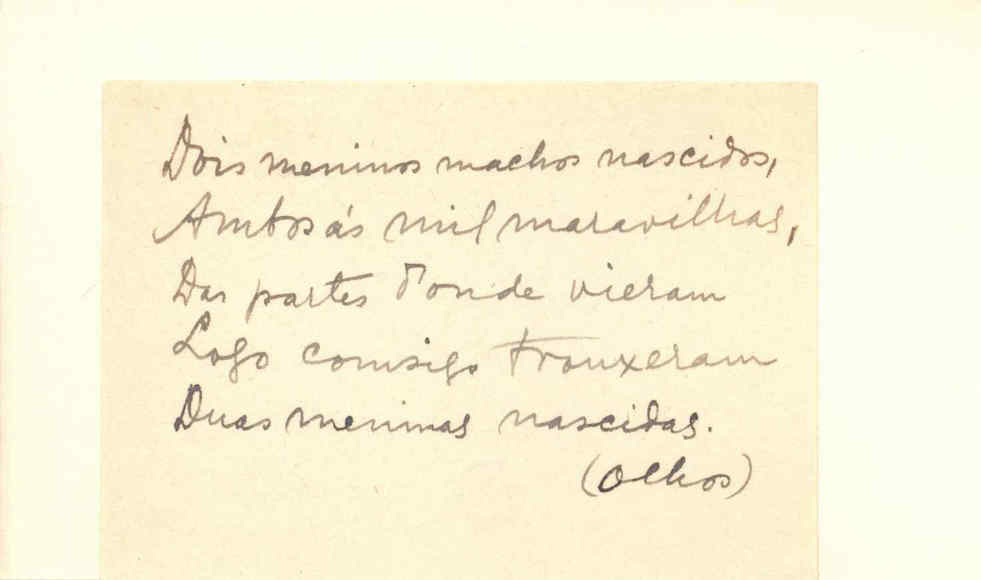 Dois meninos machos nascidos,
Ambos ás mil maravilhas,
Das partes d'onde vieram
Logo comsigo trouxeram
Duas meninas nascidas.
(Olhos)